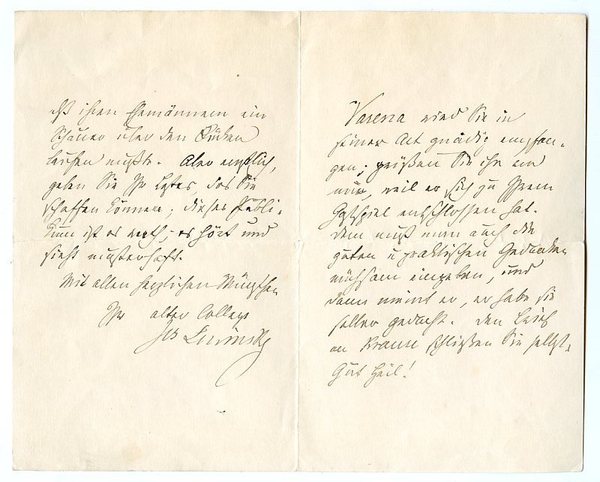 daß ihren Ehemännern ein
Schauer über den Rücken
laufen müßte. Aber endlich,
geben Sie Ihr Letztes, das Sie
schaffen können; dieses Publi-
kum ist es werth; es hört und
sieht musterhaft.
Mit allen herzlichen Wünschen
Ihr alter College
Jos Lewinsky
Varena wird Sie in
seiner Art gnädig empfan-
gen; grüßen Sie ihn von
mir, weil er sich zu Ihrem
Gastspiel entschlossen hat.
Dem muß man auch die
guten u praktischen Gedanken
mühsam eingeben, und
dann meint er, er habe sie
selber gedacht. Den Brief
an Krauss schließen Sie selbst.
Gut Heil!